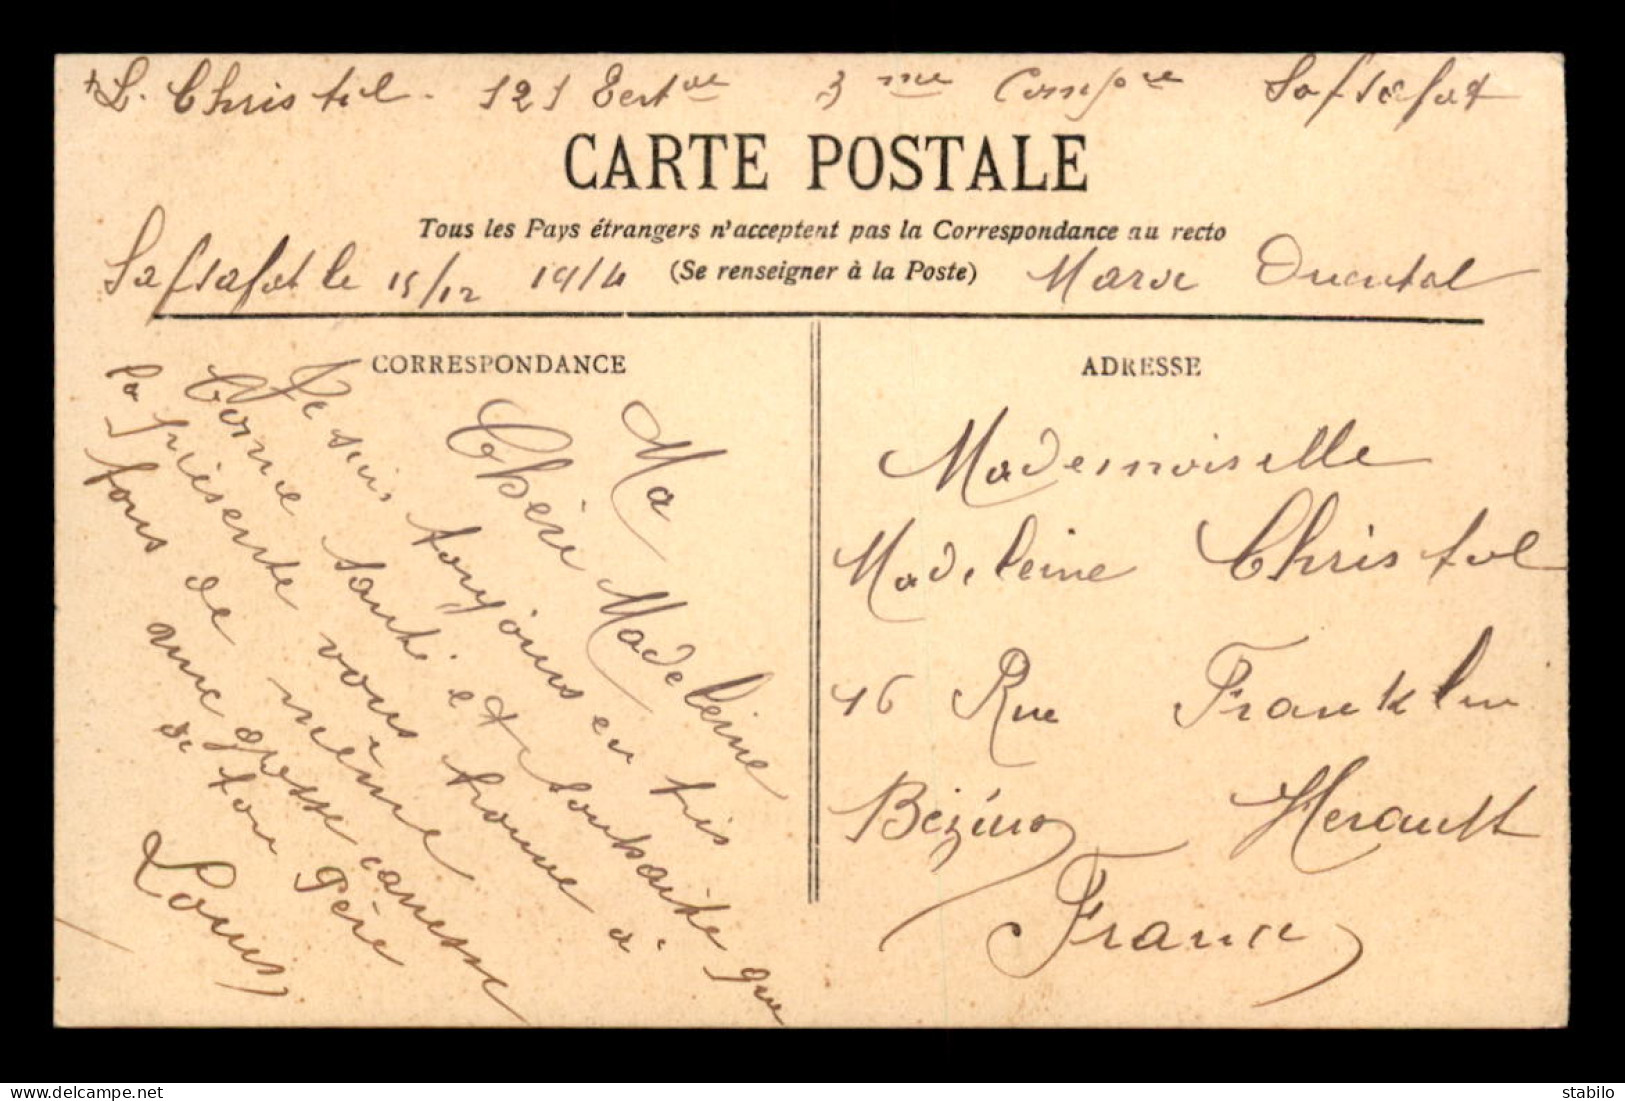 L. Christol. 121 Tert ale 3 me Comp ie Safsafat
CARTE POSTALE
Tous les Pays étrangers n'acceptent pas la Correspondance au recto
(Se renseigner à la Poste)
Safsafat le 15/12 1914
Maroc Oriental
CORRESPONDANCE
Ma
Chère Madeleine
Je suis toujours en très
bonne santé et souhaite que
la présente vous trouve à
tous de même
une grosse caresse
de ton Père
Louis
ADRESSE
Mademoiselle
Madeleine Christol
16 Rue Franklin
Béziers Herault
France
WWW.DELCAMPE.NET
stabilo